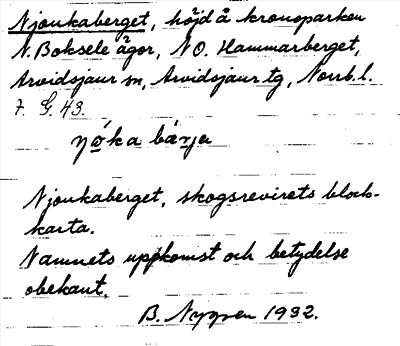 Njoukaberget, höjd å kronoparken
N. Boksele ägor, NO. Hammarberget,
Arvidsjaur sn, Arvidsjaur tg, Norrb. l.
7. G. 43.
ŋó̱ka bár̲ja
Njoukaberget, skogsrevirets block-
karta.
Namnets uppkomst och betydelse
obekant.
B. Nygren 1932.